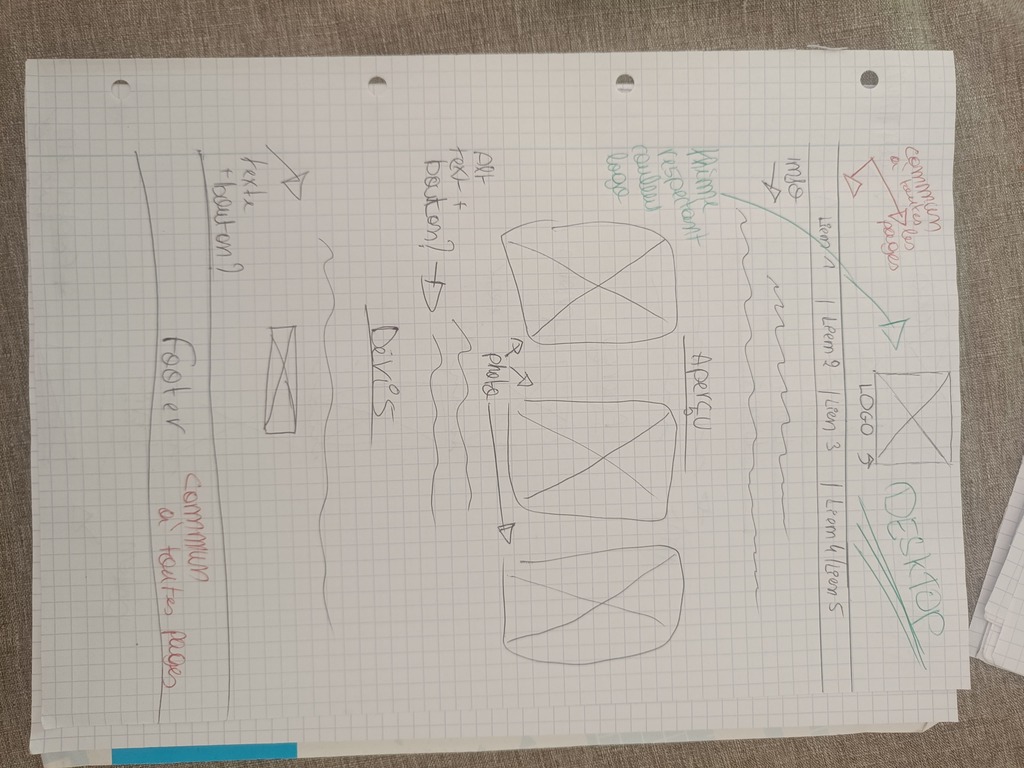 commun
à toutes
les
pages
LOGO
DESKTOP
Lien 1 | Lien 2 | Lien 3 | Lien 4 | Lien 5
info
thème
respectant
couleur
logo
Aperçu
photo
Alt
text +
bouton?
Devis
texte
+ bouton?
Footer
commun
à toutes pages